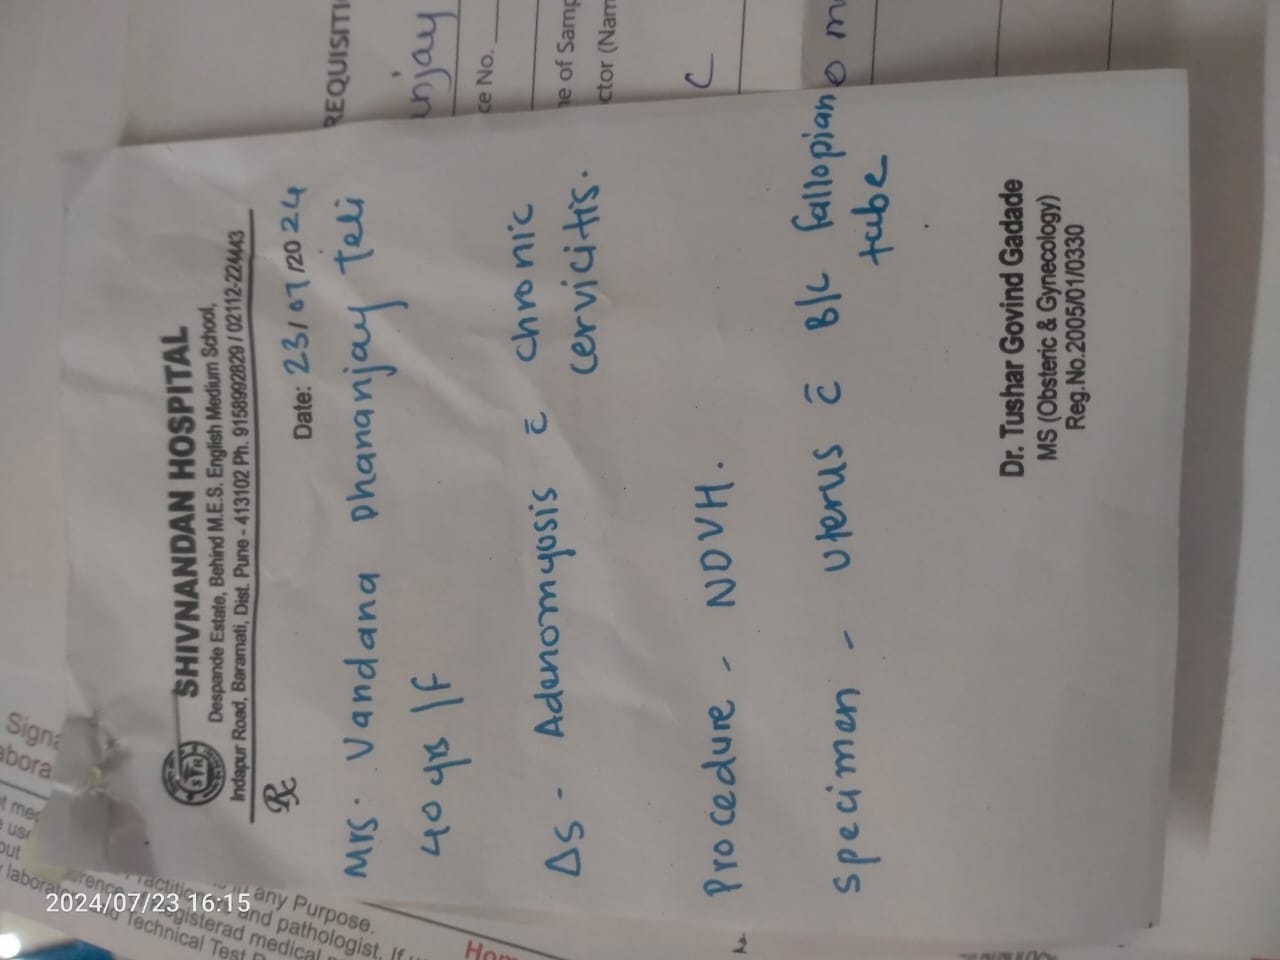 SHIVNANDAN HOSPITAL
Despande Estate, Behind M.E.S. English Medium School,
Indapur Road, Baramati, Dist. Pune - 413102 Ph. 9158992829 / 02112-224443
STH
Rx
Date: 23/07/2024
Mrs. Vandana Dhananjay Teli
40 yrs / F
Δs - Adenomyosis c̄ chronic
cervicitis.
Procedure - NDVH.
Specimen - Uterus c̄ B/L fallopian
tube
Dr. Tushar Govind Gadade
MS (Obsteric & Gynecology)
Reg.No.2005/01/0330
REQUISITI
njay
ce No.
e of Samp
ctor (Nam
C
Sign
abora
any Purpose.
and pathologist. If
registerad medical
Technical Test
Hom
2024/07/23 16:15